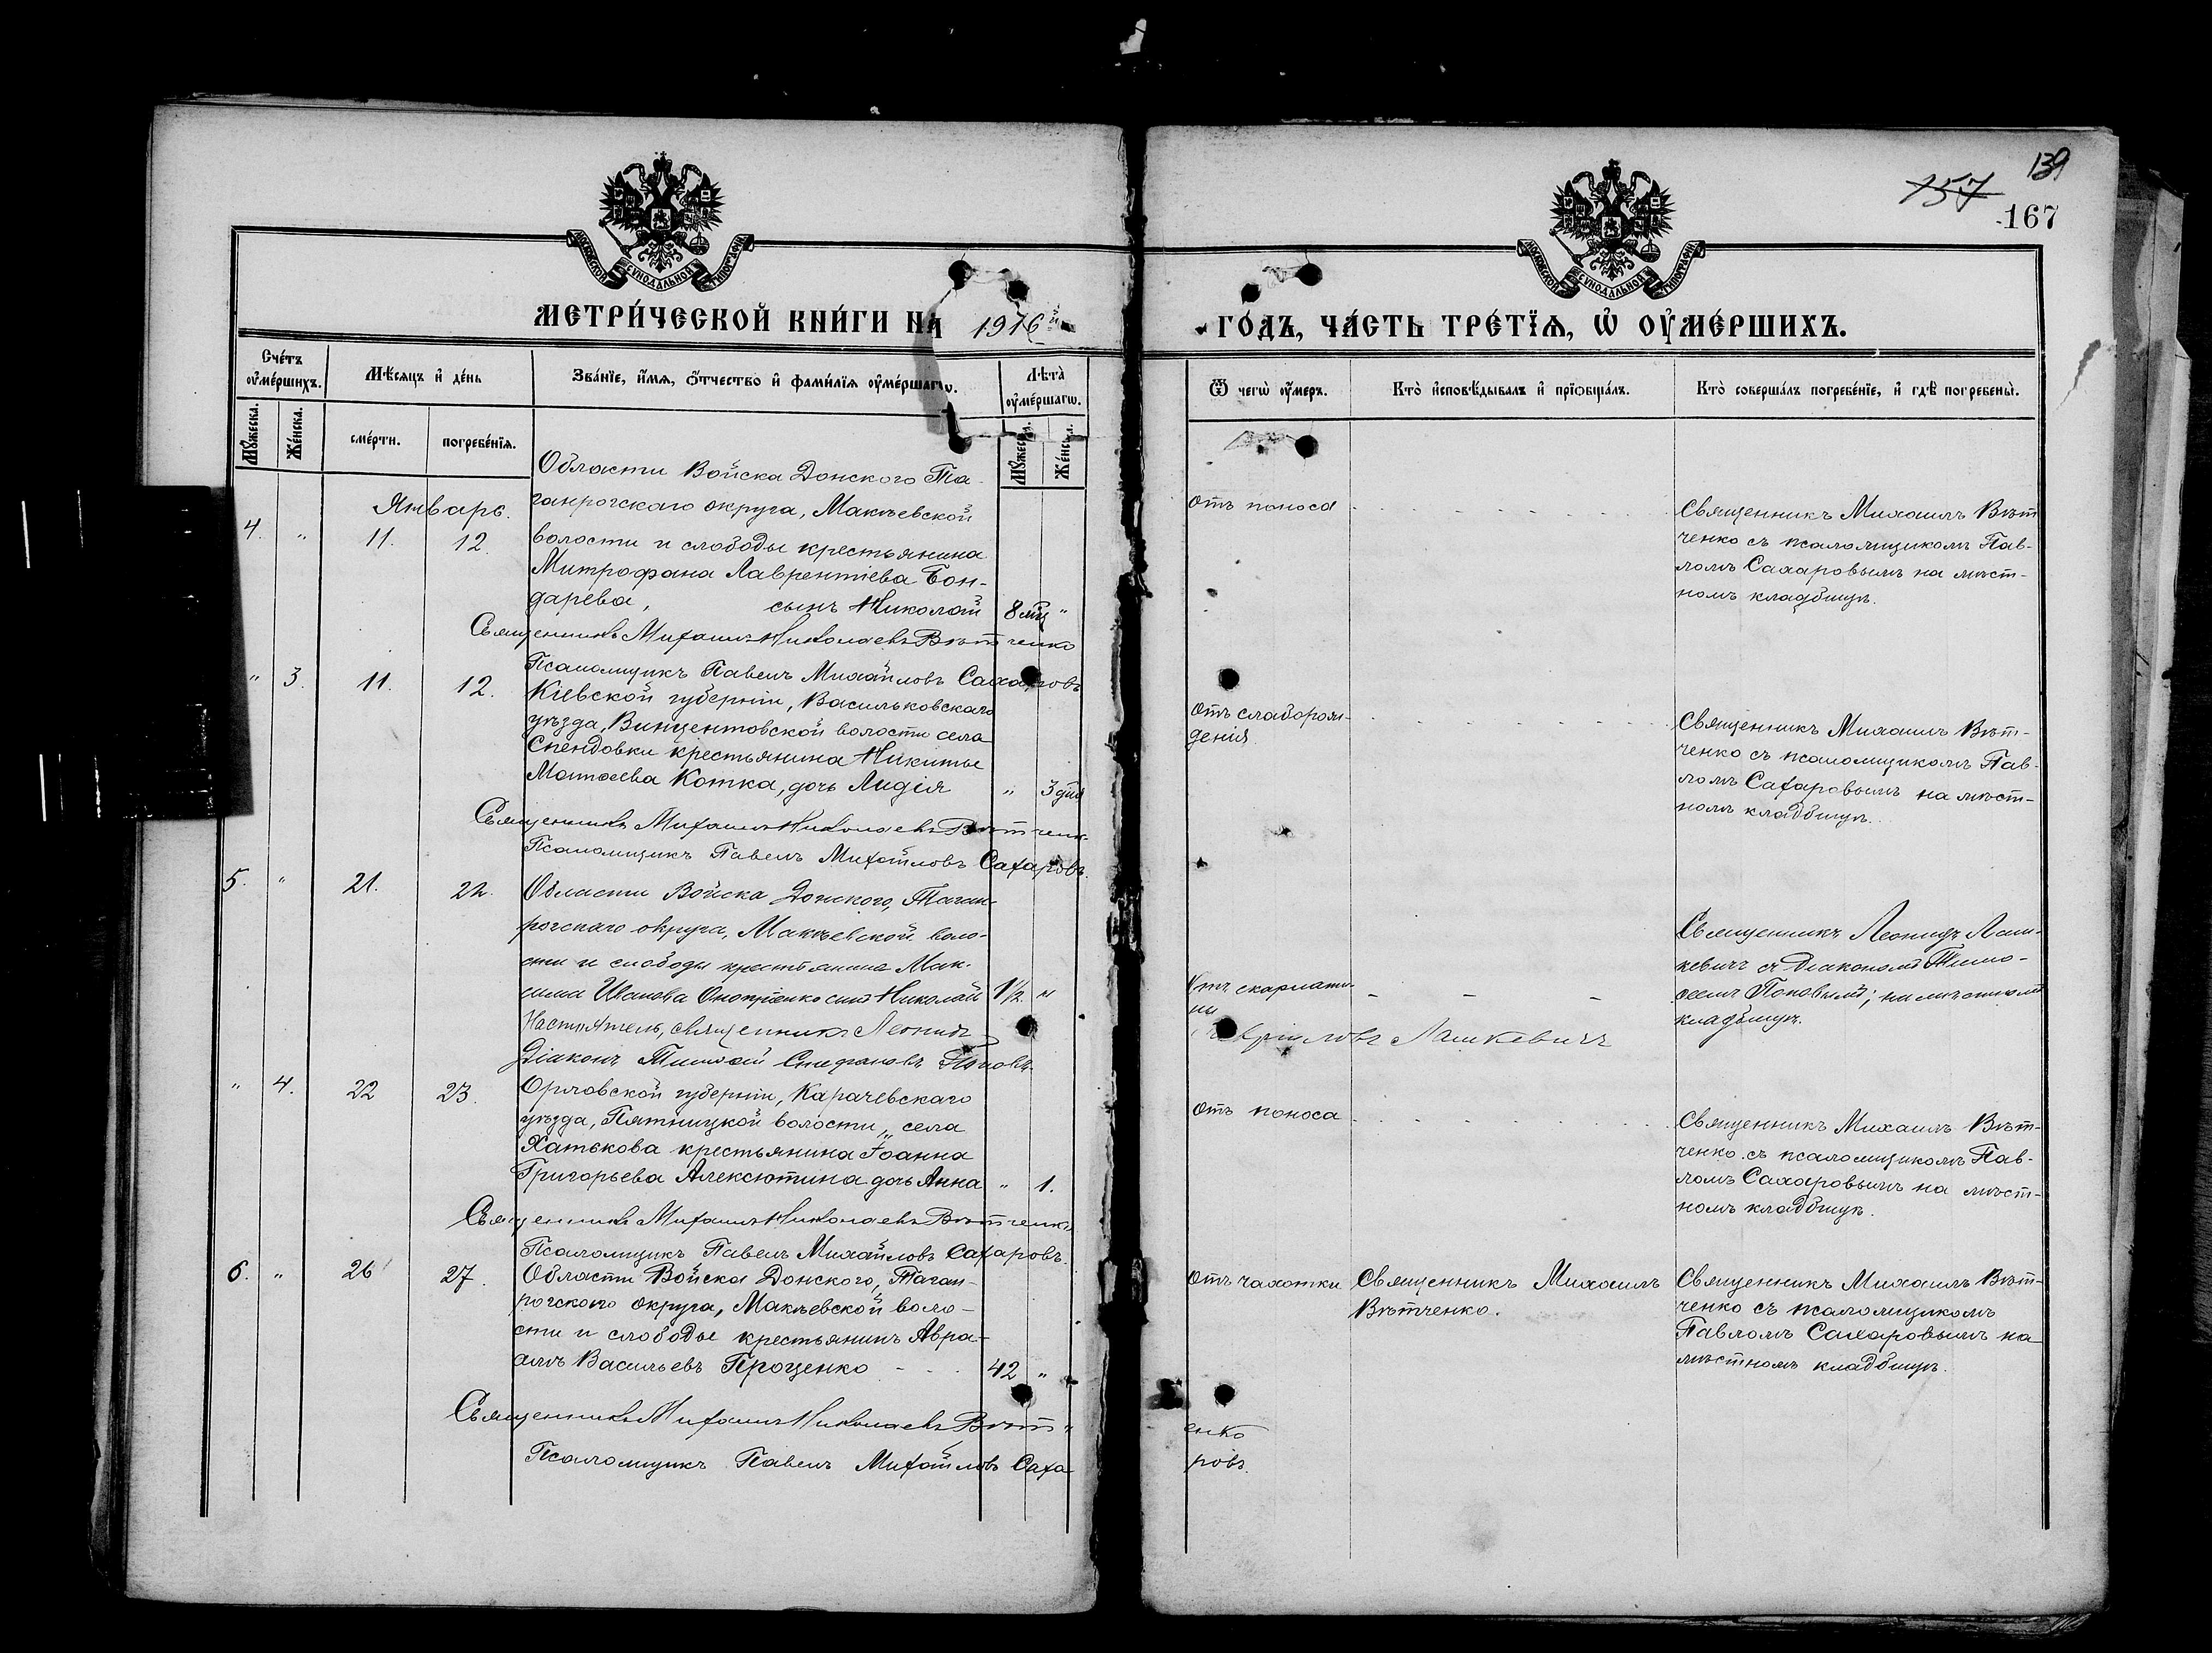 139
157
167
МОСКОВСКОЙ СѴНОДАЛЬНОЙ ТИПОГРАФІИ
МОСКОВСКОЙ СѴНОДАЛЬНОЙ ТИПОГРАФІИ
МЕТРИ́ЧЕСКОЙ КНИ́ГИ НА 1916й ГО́ДЪ, ЧА́СТЬ ТРЕ́ТІѦ, Ѡ ОУ҆МЕ́РШИХЪ.
Сче́тъ оу҆ме́ршихъ.
Мꙋ́жеска.
Же́нска.
Мѣ́сяцъ и҆ де́нь
сме́рти.
погребе́нїѧ.
Зва́нїе, и҆́мѧ, ѻ҆́тчество и҆ фами́лїѧ оу҆ме́ршагѡ.
Лѣ́та̀ оу҆ме́ршагѡ.
Мꙋ́жеска.
Же́нска.
Ѿ чегѡ̀ оу҆́меръ.
Кто̀ и҆сповѣ́дывалъ и҆ прїѡбща́лъ.
Кто̀ соверша́лъ погребе́нїе, и҆ гдѣ̀ погребены̀.
Январь.
4. " 11. 12.
Области Войска Донского Та-
ганрогскаго округа, Макѣевской
волости и слободы крестьянина
Митрофана Лаврентіева Бон-
дарева, сынъ Николай 8 мц "
отъ поноса
Священникъ Михаилъ Вѣт
ченко съ псаломщикомъ Пав-
ломъ Сахаровымъ на мѣст-
номъ кладбищѣ.
Священникъ Михаилъ Николаевъ Вѣтченко
Псаломщикъ Павелъ Михайловъ Сахаровъ
" 3. 11. 12.
Кіевской губерніи, Васильковскаго
уѣзда, Винцентовской волости села
Спендовки крестьянина Никиты
Матѳеева Котка, дочь Лидія " 3 дня
Отъ слаборож-
денія
Священникъ Михаилъ Вѣт-
ченко съ псаломщикомъ Пав-
ломъ Сахаровымъ на мѣст-
номъ кладбищѣ.
Священникъ Михаилъ Николаевъ Вѣтченко
Псаломщикъ Павелъ Михайловъ Сахаровъ.
5. " 21. 22.
Области Войска Донского, Таган-
рогскаго округа, Макѣевской воло-
сти и слободы крестьянина Мак-
сима Иванова Оноприенко сынъ Николай 1½ "
Отъ скарлати-
ны
Священникъ Леонидъ Лаш-
кевичъ съ діакономъ Тимо-
ѳеемъ Поповымъ; на мѣстномъ
кладбищѣ.
Настоятель, священникъ Леонидъ Гавриловъ Лашкевичъ
Діаконъ Тимоѳей Стефановъ Поповъ
" 4. 22 23.
Орловской губерніи, Карачевскаго
уѣзда, Пятницкой волости, села
Хатькова крестьянина Іоанна
Григорьева Алексютина дочь Анна " 1.
отъ поноса
Священникъ Михаилъ Вѣт-
ченко съ псаломщикомъ Пав-
ломъ Сахаровымъ на мѣст-
номъ кладбищѣ.
Священникъ Михаилъ Николаевъ Вѣтченко
Псаломщикъ Павелъ Михайловъ Сахаровъ.
6. " 26 27.
Области Войска Донского, Таган-
рогскаго округа, Макѣевской воло-
сти и слободы крестьянинъ Авра-
амъ Васильевъ Проценко 42 "
Отъ чахотки
Священникъ Михаилъ
Вѣтченко.
Священникъ Михаилъ Вѣт-
ченко съ псаломщикомъ
Павломъ Сахаровымъ на
мѣстномъ кладбищѣ.
Священникъ Михаилъ Николаевъ Вѣтченко
Псаломщикъ Павелъ Михайловъ Сахаровъ.